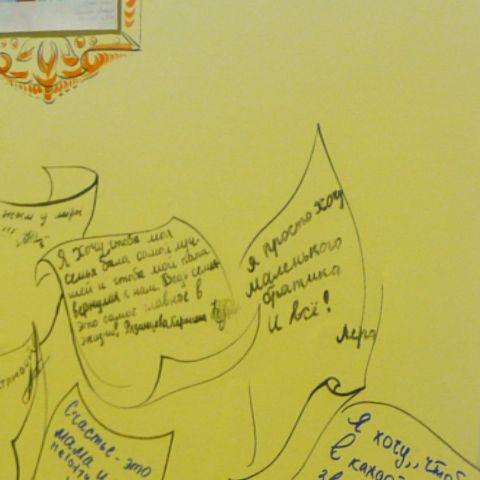 у меня
!!!
Я хочу, чтоба моя
семья была самой луч-
шей и чтоба мой папа
вернулся к нам. Ведь семья
это самое главное в
жизни,
Я просто хочу
маленького
братика
И всё!
Лера
Счастье - это
мама и
Я хочу, чтоб
в каждо